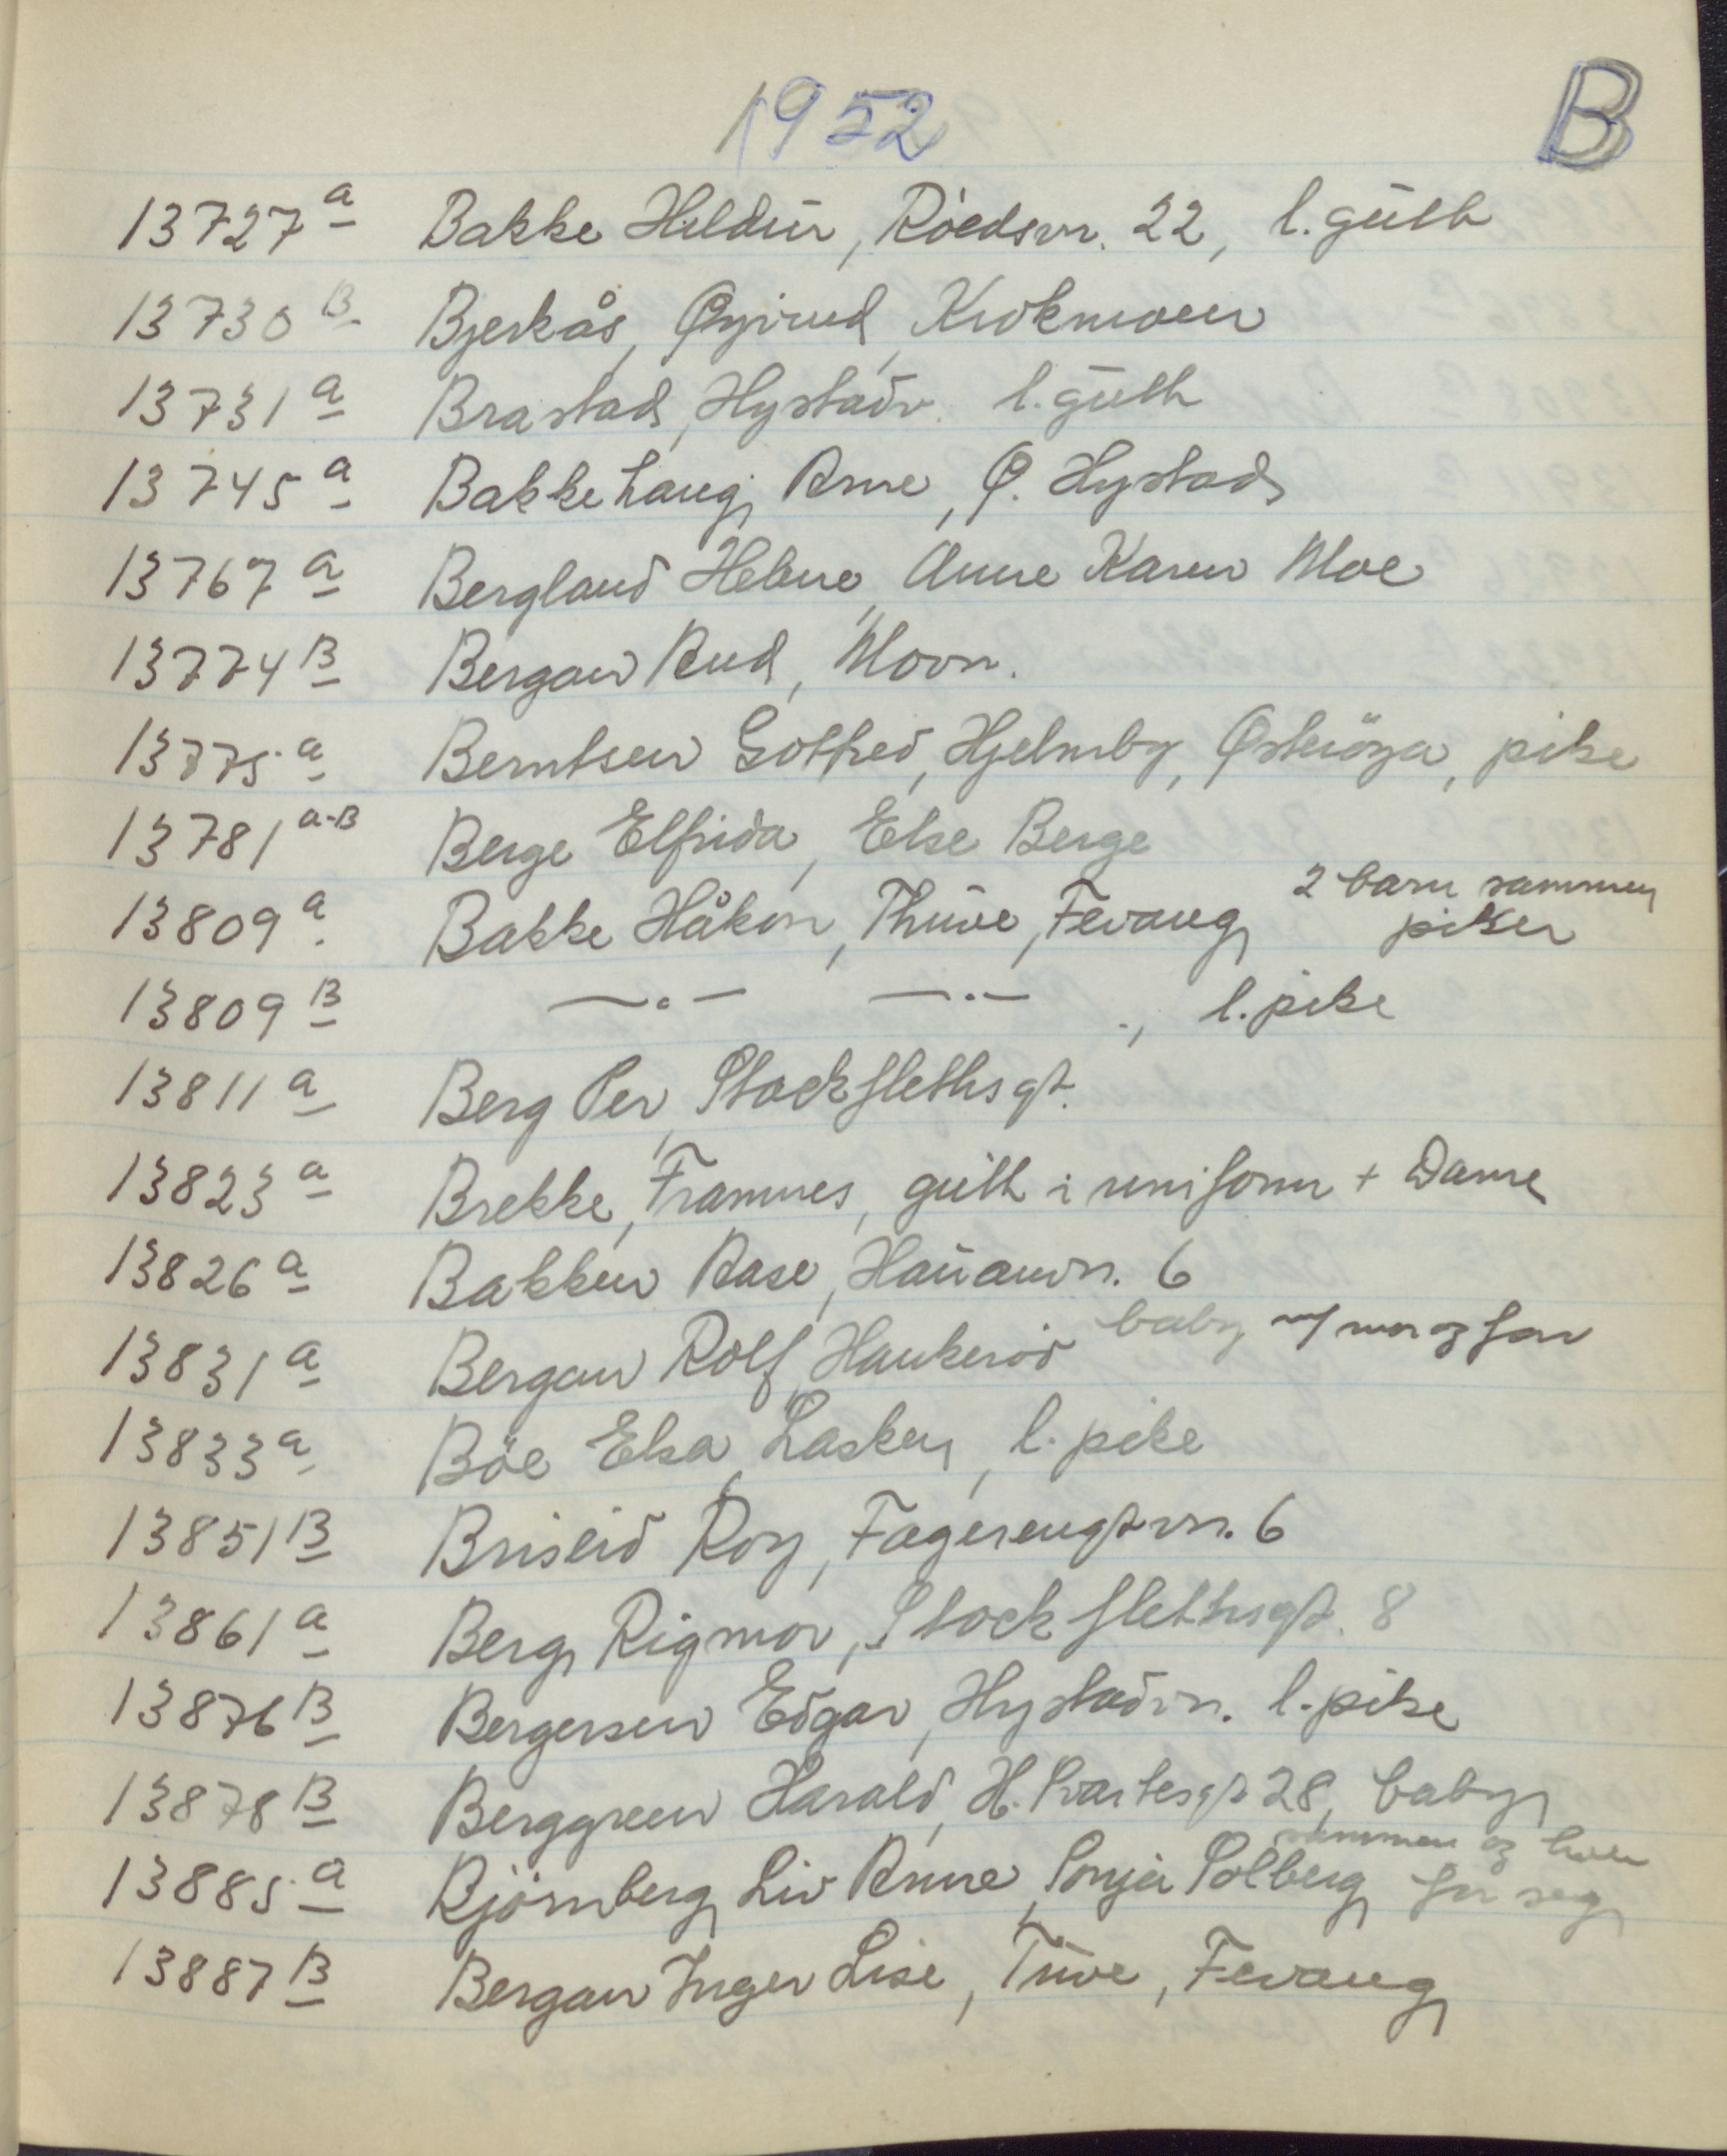 1952 B
13727 a Bakke Hildur, Röedsvn. 22, l. gutt
13730 B Bjerkås, Øyvind, Krokmoen
13731 a Brastad, Hystadv. l. gutt
13745 a Bakkehaug, Arne, Ø. Hystad
13767 a Bergland Helene, Anne Karen Moe
13774 B Bergan Aud, Movn.
13775 a Berntsen Gotfred, Hjelmby, Østeröya, pike
13781 a-B Berge Elfrida, Else Berge
13809 a Bakke Håkon, Thuve, Fevang 2 barn sammen piker
13809 B —〃— —〃— ., l. pike
13811 a Berg Per, Stockflethsgt.
13823 a Brekke, Framnes, gutt i uniform + Dame
13826 a Bakken Aase, Hauanvn. 6
13831 a Bergan Rolf, Haukeröd baby m/ mor og far
13833 a Böe Elsa, Lasken, l. pike
13851 B Briseid Roy, Fagerengtvn. 6
13861 a Berg, Rigmor, Stockflethsgt. 8
13876 B Bergersen Edgar, Hystadvn. l. pike
13878 B Berggreen Harald, H. Svartesgt 28, baby
13885 a Björnberg Liv Anne, Sonja Solberg sammen og hver for seg
13887 B Bergan Inger Lise, Tuve, Fevang